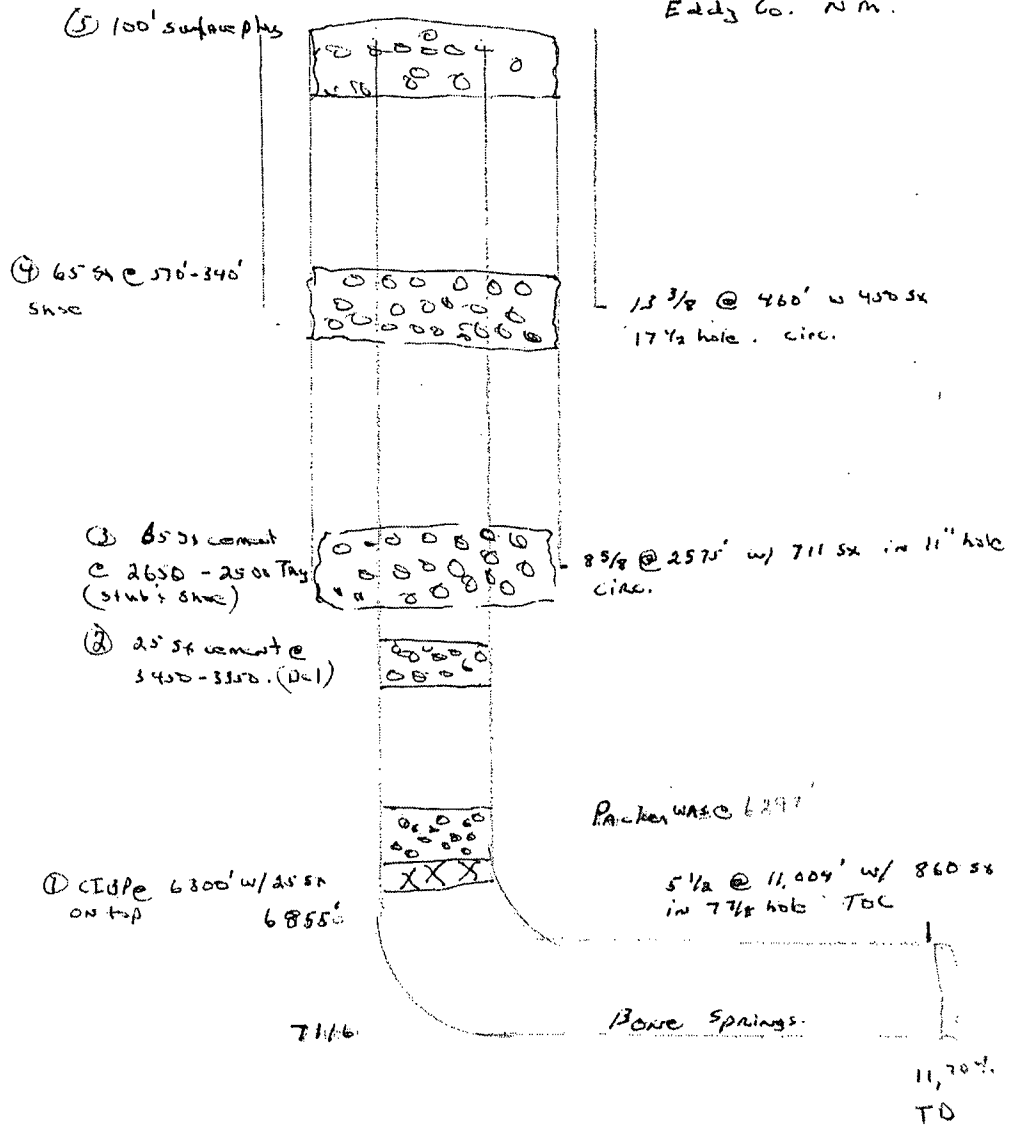 Eddy Co. N M.
⑤ 100' surface plug
④ 65 sx @ 570'-340'
shoe
13 3/8 @ 460' w 450 sx
17 1/2 hole. circ.
③ 65 sx cement
@ 2650 - 2500 Tag
(stub & shoe)
8 5/8 @ 2575' w/ 711 sx in 11" hole
circ.
② 25 sx cement @
3450-3350. (Del)
Packer WAS @ 6297'
① CIBP @ 6300' w/ 25 sx
on top
6855'
5 1/2 @ 11,004' w/ 860 sx
in 7 7/8 hole TOC
7116
Bone Springs.
TD